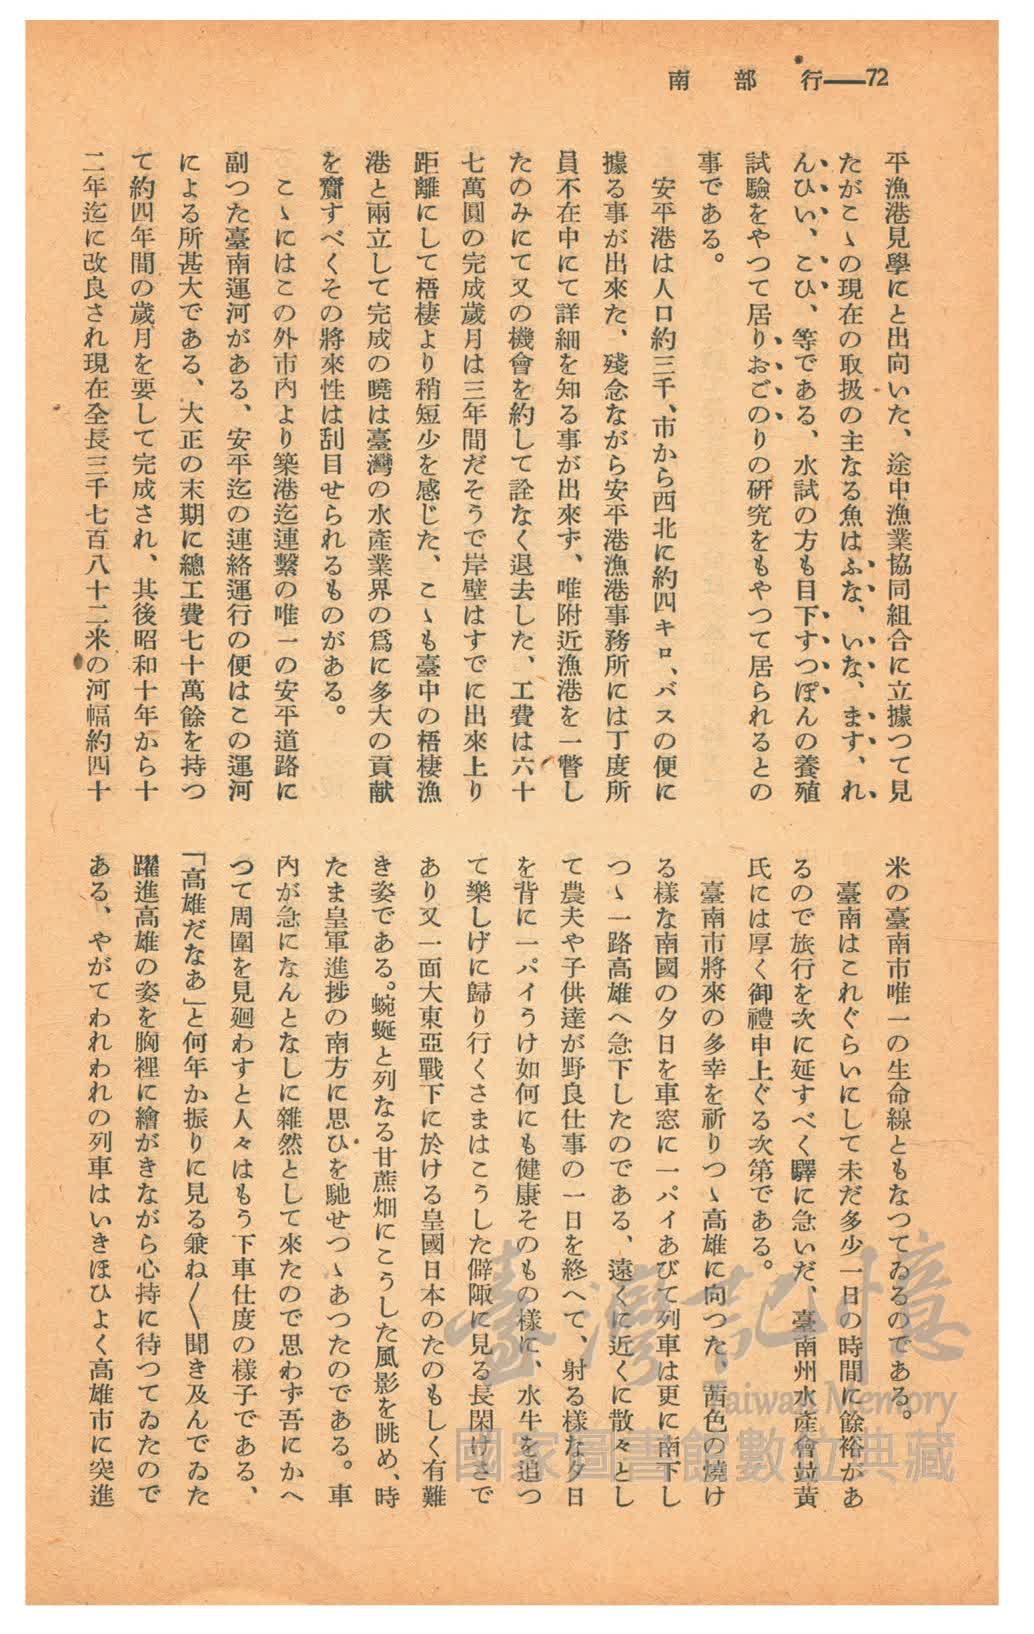 南部行——72
平漁港見學にと出向いた、途中漁業協同組合に立據つて見
たがこゝの現在の取扱の主なる魚はふな、いな、ます、れ
んひい、こひ、等である、水試の方も目下すつぽんの養殖
試驗をやつて居りおごのりの硏究をもやつて居られるとの
事である。
安平港は人口約三千、市から西北に約四キロ、バスの便に
據る事が出來た、殘念ながら安平港漁港事務所には丁度所
員不在中にて詳細を知る事が出來ず、唯附近漁港を一瞥し
たのみにて又の機會を約して詮なく退去した、工費は六十
七萬圓の完成歲月は三年間だそうで岸壁はすでに出來上り
距離にして梧棲より稍短少を感じた、こゝも臺中の梧棲漁
港と兩立して完成の曉は臺灣の水產業界の爲に多大の貢獻
を齎すべくその將來性は刮目せられるものがある。
こゝにはこの外市內より築港迄連繫の唯一の安平道路に
副つた臺南運河がある、安平迄の連絡運行の便はこの運河
による所甚大である、大正の末期に總工費七十萬餘を持つ
て約四年間の歲月を要して完成され、其後昭和十年から十
二年迄に改良され現在全長三千七百八十二米の河幅約四十
米の臺南市唯一の生命線ともなつてゐるのである。
臺南はこれぐらいにして未だ多少一日の時間に餘裕があ
るので旅行を次に延すべく驛に急いだ、臺南州水產會竝黃
氏には厚く御禮申上ぐる次第である。
臺南市將來の多幸を祈りつゝ高雄に向つた、茜色の燒け
る樣な南國の夕日を車窓に一パイあびて列車は更に南下し
つゝ一路高雄へ急下したのである、遠くに近くに散々とし
て農夫や子供達が野良仕事の一日を終へて、射る樣な夕日
を背に一パイうけ如何にも健康そのもの樣に、水牛を追つ
て樂しげに歸り行くさまはこうした僻陬に見る長閑けさで
あり又一面大東亞戰下に於ける皇國日本のたのもしく有難
き姿である。蜿蜒と列なる甘蔗畑にこうした風影を眺め、時
たま皇軍進捗の南方に思ひを馳せつゝあつたのである。車
內が急になんとなしに雜然として來たので思わず吾にかへ
つて周圍を見廻わすと人々はもう下車仕度の樣子である、
「高雄だなあ」と何年か振りに見る兼ね〳〵聞き及んでゐた
躍進高雄の姿を胸裡に繪がきながら心持に待つてゐたので
ある、やがてわれわれの列車はいきほひよく高雄市に突進
臺灣記憶
Taiwan Memory
國家圖書館數位典藏